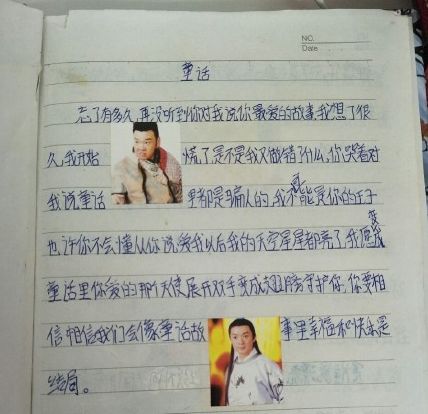 NO.
Date
童话
忘了有多久再没听到你对我说你最爱的故事我想了很
久我开始慌了是不是我又做错了什么你哭着对
我说童话里都是骗人的我不可能是你的王子
也许你不会懂从你说爱我以后我的天空星星都亮了我愿变成
童话里你爱的那个天使展开双手变成翅膀守护你你要相
信相信我们会像童话故事里幸福和快乐是
结局。